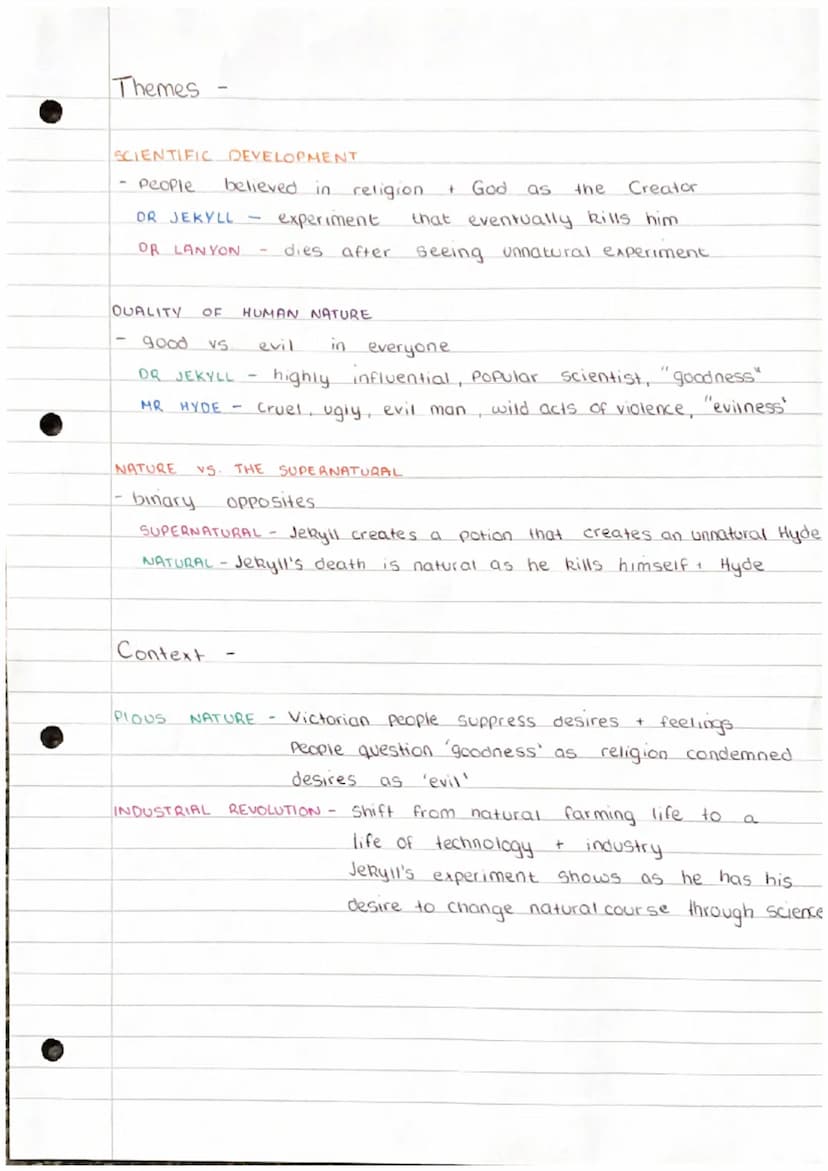 Themes -
SCIENTIFIC DEVELOPMENT
- People believed in religion + God as the Creator
DR JEKYLL - experiment that eventually kills him
DR LANYON - dies after seeing unnatural experiment
DUALITY OF HUMAN NATURE
- good vs evil in everyone
DR JEKYLL - highly influential, popular scientist, "goodness"
MR HYDE - cruel, ugly, evil man, wild acts of violence, "evilness"
NATURE VS. THE SUPERNATURAL
- binary opposites
SUPERNATURAL - Jekyll creates a potion that creates an unnatural Hyde
NATURAL - Jekyll's death is natural as he kills himself + Hyde
Context -
PIOUS NATURE - Victorian people suppress desires + feelings
People question 'goodness' as religion condemned
desires as 'evil'
INDUSTRIAL REVOLUTION - Shift from natural farming life to a
life of technology + industry
Jekyll's experiment shows as he has his
desire to change natural course through science